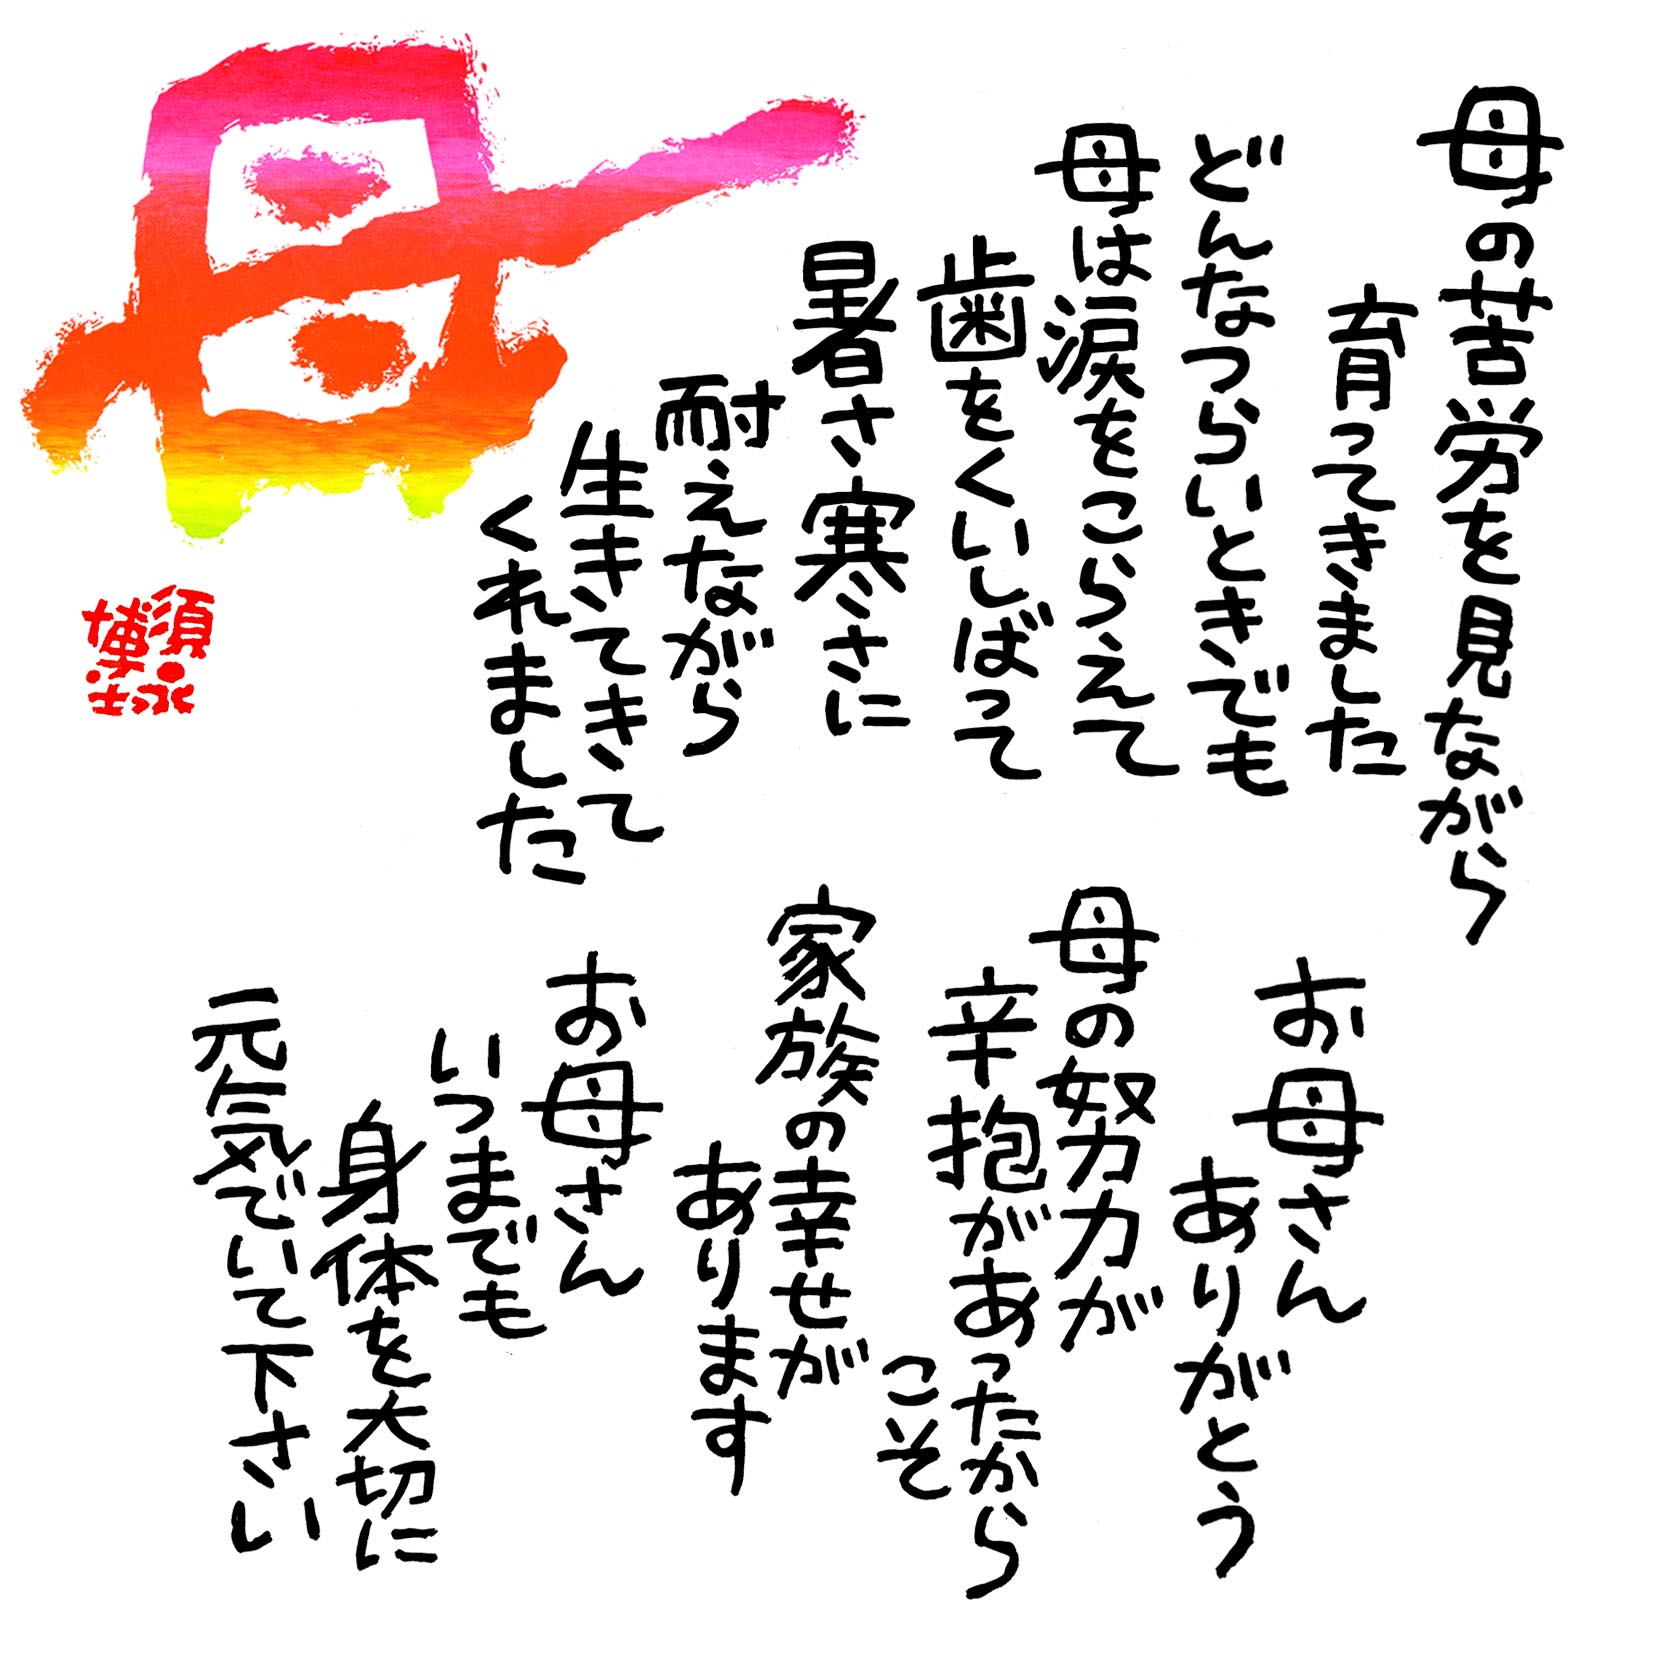 母の苦労を見ながら
育ってきました
どんなつらいときでも
母は涙をこらえて
歯をくいしばって
暑さ寒さに
耐えながら
生きてきて
くれました
お母さん
ありがとう
母の努力が
辛抱があったから
こそ
家族の幸せが
あります
お母さん
いつまでも
身体を大切に
元気でいて下さい
母
須永
博士